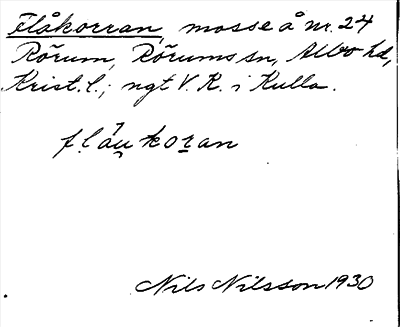 Flåkorran, mosse å nr. 24
Rörum, Rörums sn, Albo hd,
Krist. l.; ngt V. K. i Kulla.
flău̯koran
Nils Nilsson 1930